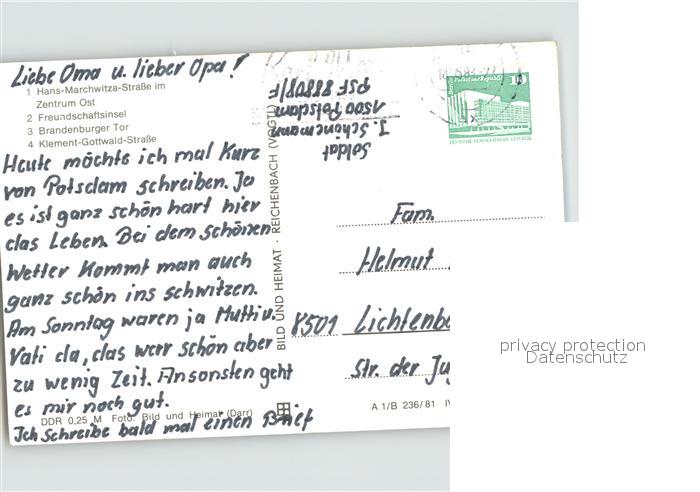 Liebe Oma u. lieber Opa!
1 Hans-Marchwitza-Straße im
Zentrum Ost
2 Freundschaftsinsel
3 Brandenburger Tor
4 Klement-Gottwald-Straße
Heute möchte ich mal kurz
von Potsdam schreiben. Ja
es ist ganz schön hart hier
das Leben. Bei dem schönen
Wetter kommt man auch
ganz schön ins schwitzen.
Am Sonntag waren ja Mutti u.
Vati da, das war schön aber
zu wenig Zeit. Ansonsten geht
es mir noch gut.
DDR 0,25 M Foto: Bild und Heimat (Darr)
Ich schreibe bald mal einen Brief
BILD UND HEIMAT · REICHENBACH (VOGTL)
Soldat
J. Schönemann
1500 Potsdam
PSF 88808/F
Berlin Palast der Republik
10
DEUTSCHE DEMOKRATISCHE REPUBLIK
Fam.
Helmut
8501 Lichtenb
Str. der Ju
A 1/B 236/81
privacy protection
Datenschutz